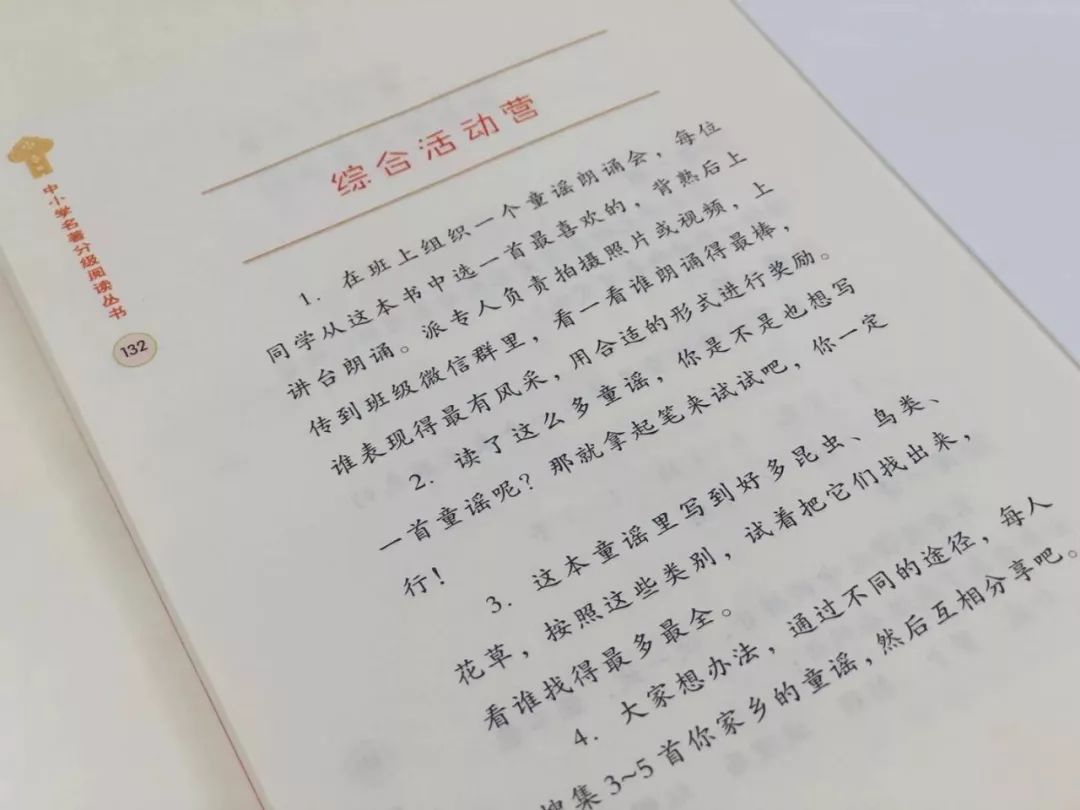 中小学名著分级阅读丛书
132
综合活动营
1. 在班上组织一个童谣朗诵会，每位
同学从这本书中选一首最喜欢的，背熟后上
讲台朗诵。派专人负责拍摄照片或视频，上
传到班级微信群里，看一看谁朗诵得最棒，
谁表现得最有风采，用合适的形式进行奖励。
2. 读了这么多童谣，你是不是也想写
一首童谣呢？那就拿起笔来试试吧，你一定
行！
3. 这本童谣里写到好多昆虫、鸟类、
花草，按照这些类别，试着把它们找出来，
看谁找得最多最全。
4. 大家想办法，通过不同的途径，每人
搜集3~5首你家乡的童谣，然后互相分享吧。